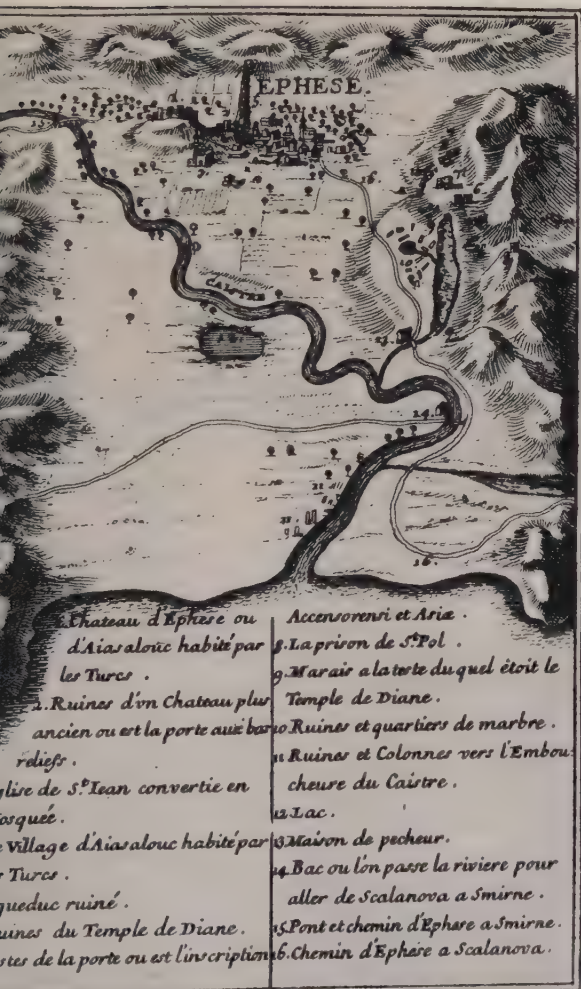 EPHESE.
CAISTRE
16.
13.
14.
16.
Chateau d'Ephese ou
d'Aiasalouc habité par
les Turcs.
2. Ruines d'vn Chateau plus
ancien ou est la porte aux bas
reliefs.
glise de S.t Iean convertie en
osquée.
e Village d'Aiasalouc habité par
s Turcs.
queduc ruiné.
uines du Temple de Diane.
stes de la porte ou est l'inscription
Accensorensi et Asiæ.
8. La prison de S.t Pol.
9. Marais a la teste du quel étoit le
Temple de Diane.
10. Ruines et quartiers de marbre.
11. Ruines et Colonnes vers l'Embou-
cheure du Caistre.
12. Lac.
13. Maison de pecheur.
14. Bac ou l'on passe la riviere pour
aller de Scalanova a Smirne.
15. Pont et chemin d'Ephese a Smirne.
16. Chemin d'Ephese a Scalanova.